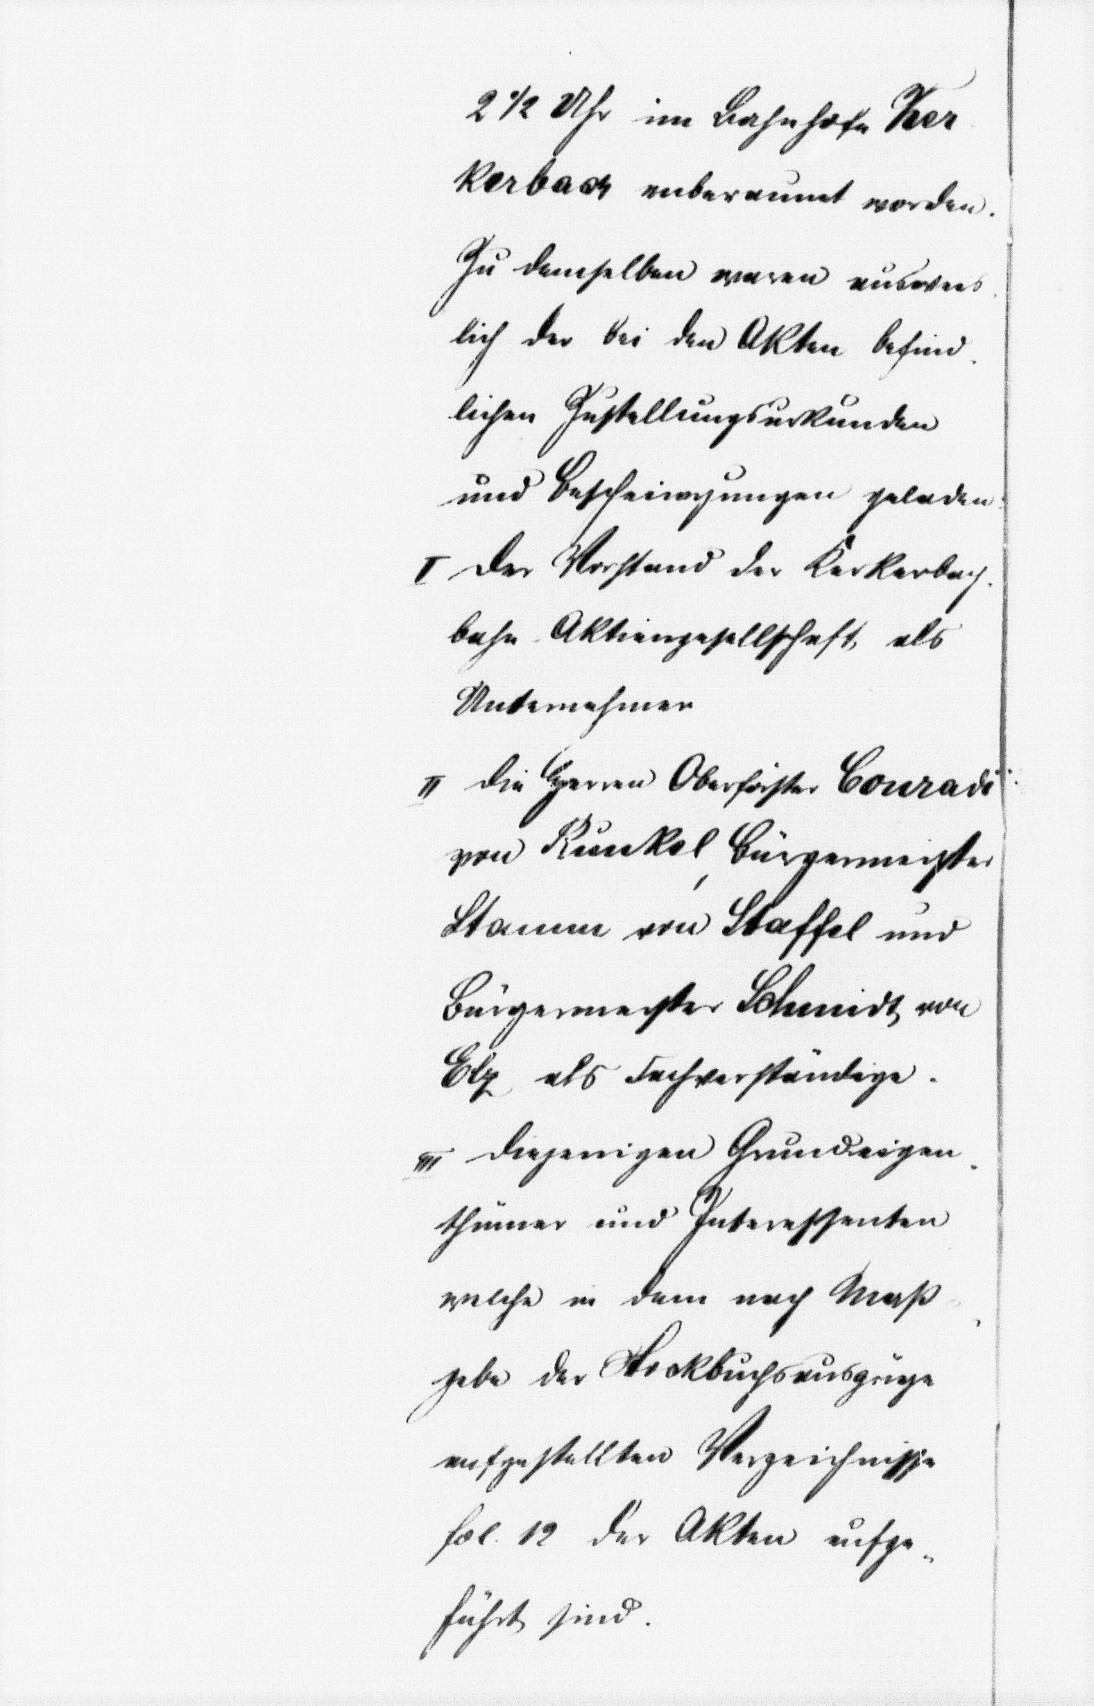 2 1/2 Uhr im Bahnhofe Ker
kerbach anberaumt worden.
Zu demselben waren ausweis
lich der bei den Akten befind
lichen Zustellungsurkunden
und Bescheinigungen geladen:
I der Vorstand der Kerkerbach
bahn Aktiengesellschaft, als
Unternehmer
II die Herren Oberförster Conradi
von Runkel, Bürgermeister
Stamm von Staffel und
Bürgermeister Schmidt von
Elz als Sachverständige.
III diejenigen Grundeigen
thümer und Interessenten
welche in dem nach Maß
gabe der Stockbuchsauszüge
aufgestellten Verzeichnisse
fol. 12 der Akten aufge
führt sind.